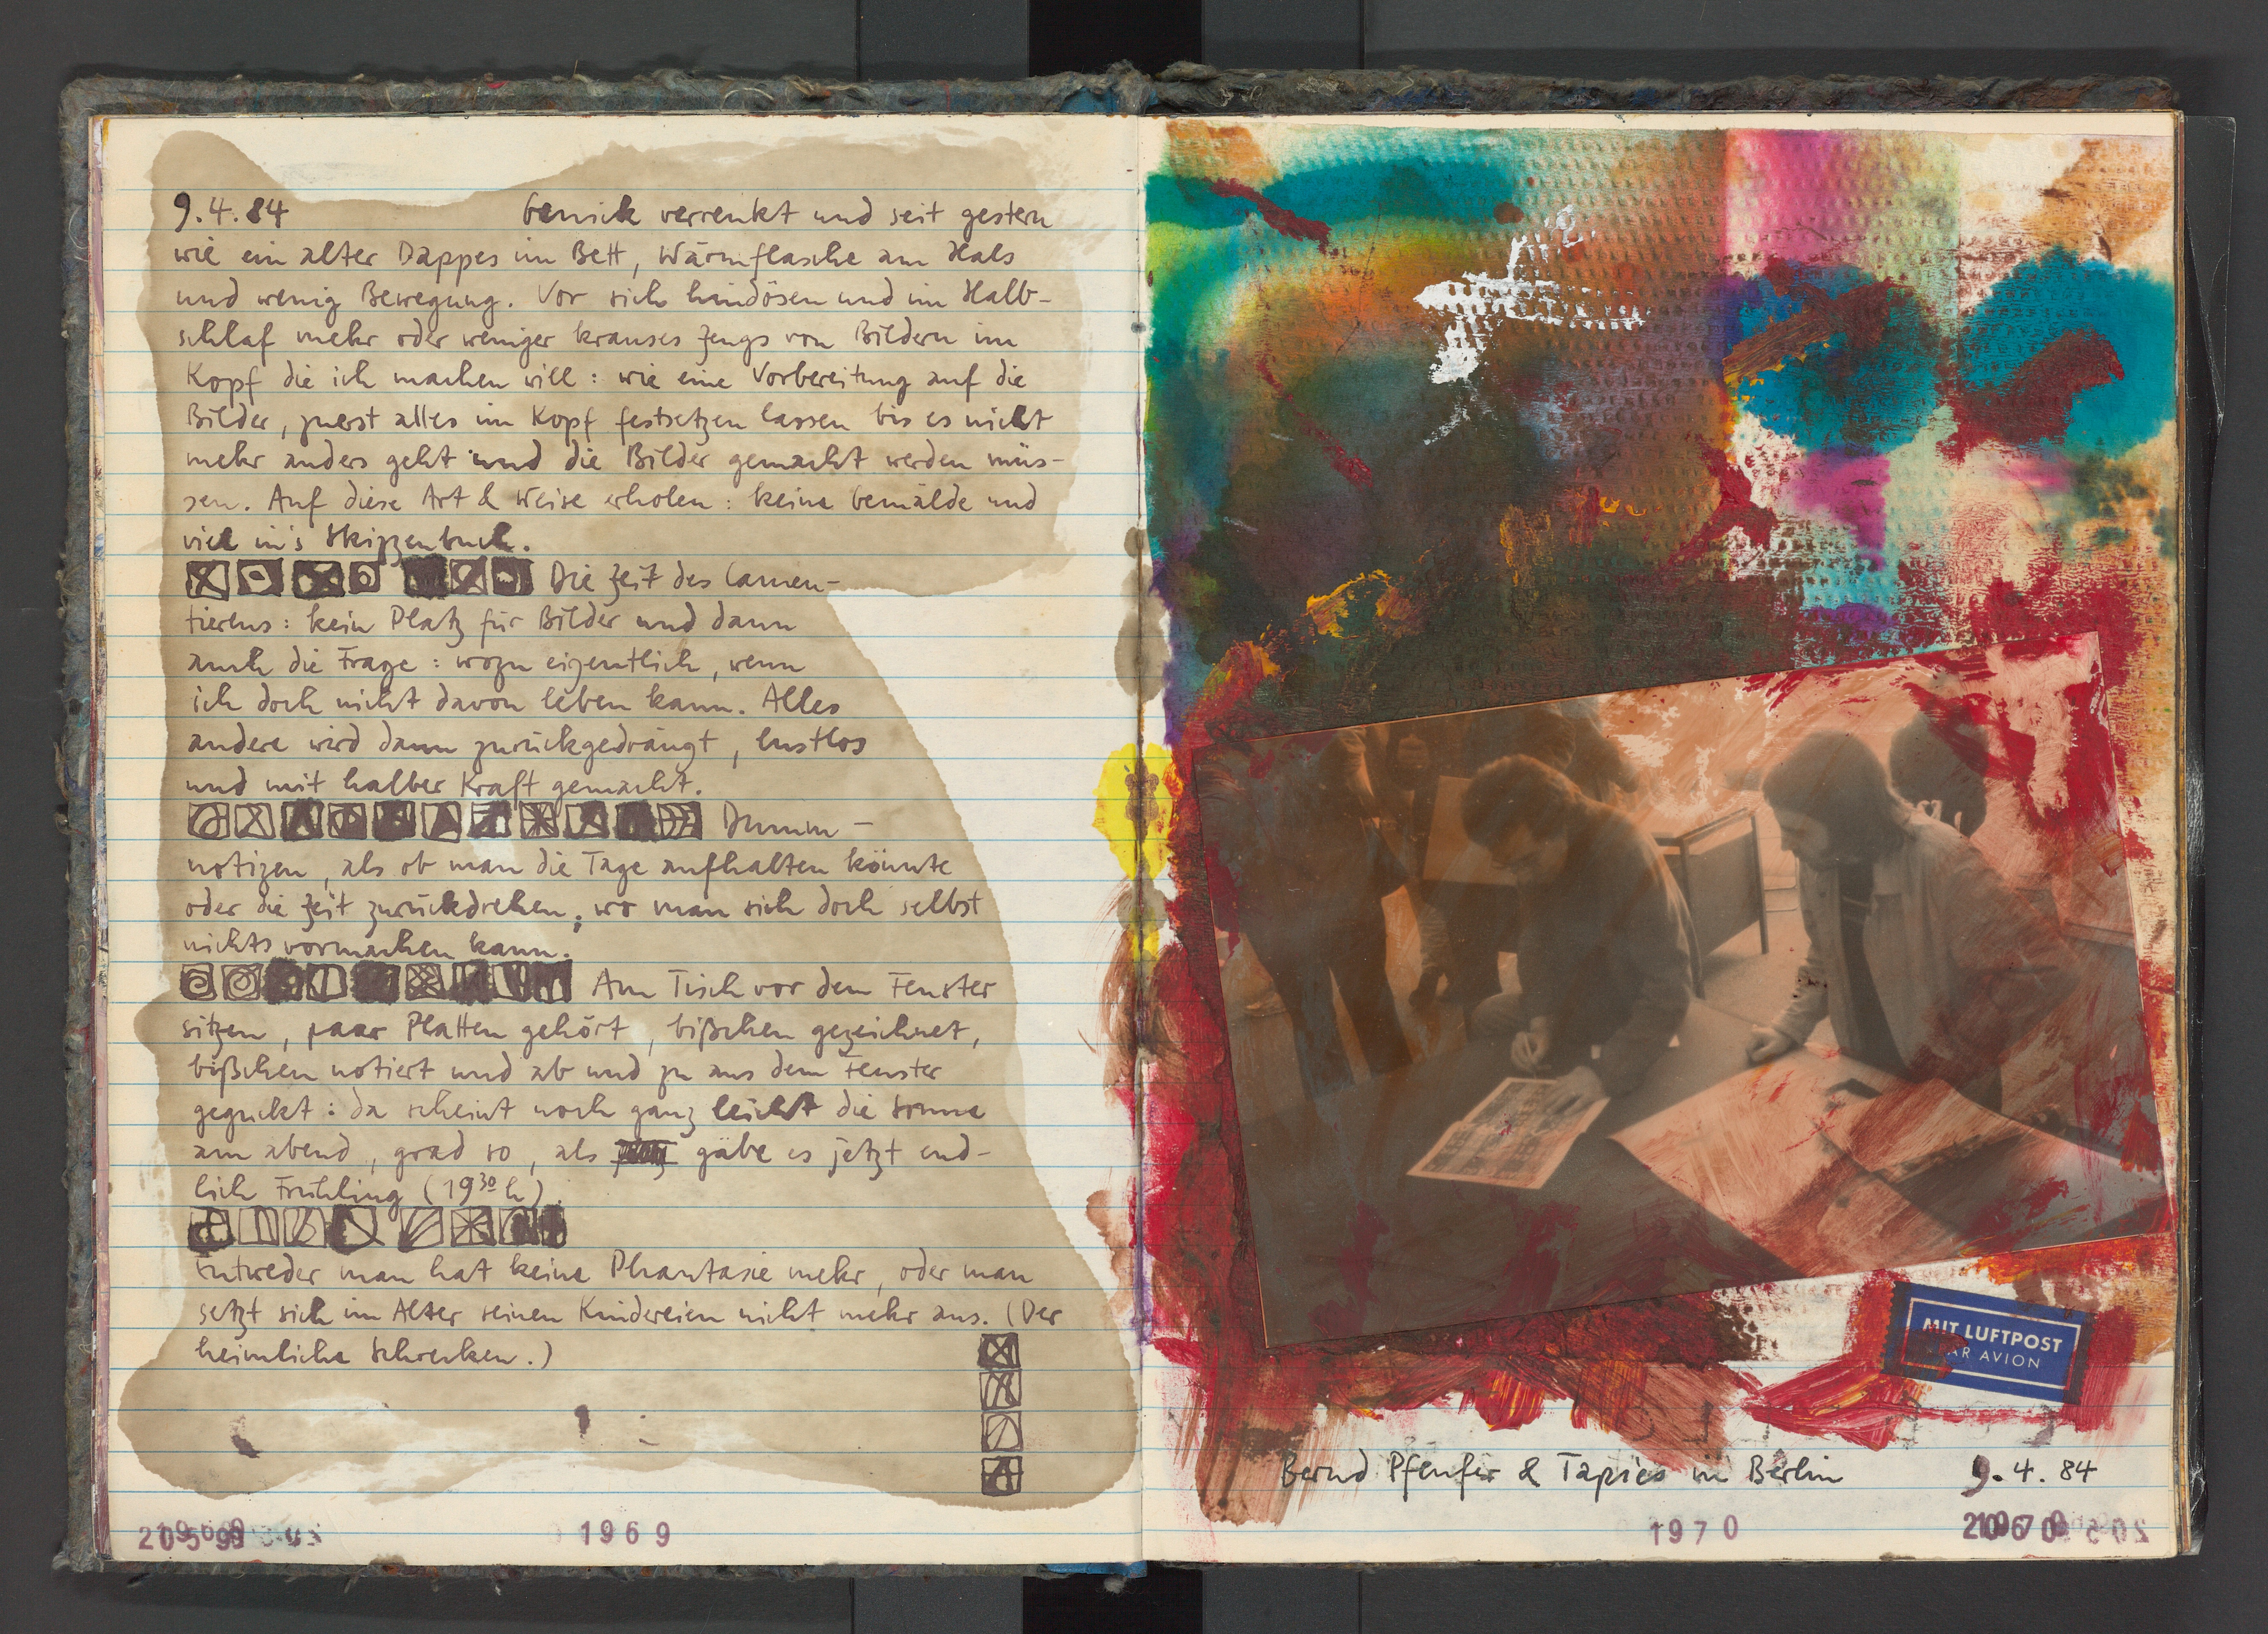 9.4.84 Genick verrenkt und seit gestern
wie ein alter Dappes im Bett, Wärmflasche am Hals
und wenig Bewegung. Vor sich hindösen und im Halb-
schlaf mehr oder weniger krauses Zeugs von Bildern im
Kopf die ich machen will: wie eine Vorbereitung auf die
Bilder, zuerst alles im Kopf festsetzen lassen bis es nicht
mehr anders geht und die Bilder gemacht werden müs-
sen. Auf diese Art & Weise erholen: keine Gemälde und
viel in's Skizzenbuch.
Die Zeit des Lamen-
tierens: kein Platz für Bilder und dann
auch die Frage: wozu eigentlich, wenn
ich doch nicht davon leben kann. Alles
andere wird dann zurückgedrängt, lustlos
und mit halber Kraft gemacht.
Dumm-
notizen, als ob man die Tage aufhalten könnte
oder die Zeit zurückdrehen, wo man sich doch selbst
nichts vormachen kann.
Am Tisch vor dem Fenster
sitzen, paar Platten gehört, bißchen gezeichnet,
bißchen notiert und ab und zu aus dem Fenster
geguckt: da scheint noch ganz leicht die Sonne
am abend, grad so, als gäbe es jetzt end-
lich Frühling (19³⁰ h).
Entweder man hat keine Phantasie mehr, oder man
setzt sich im Alter seinen Kindereien nicht mehr aus. (Der
heimliche Schrecken.)
1969
MIT LUFTPOST
PAR AVION
Bernd Pfeufer & Tapies in Berlin 9.4.84
1970